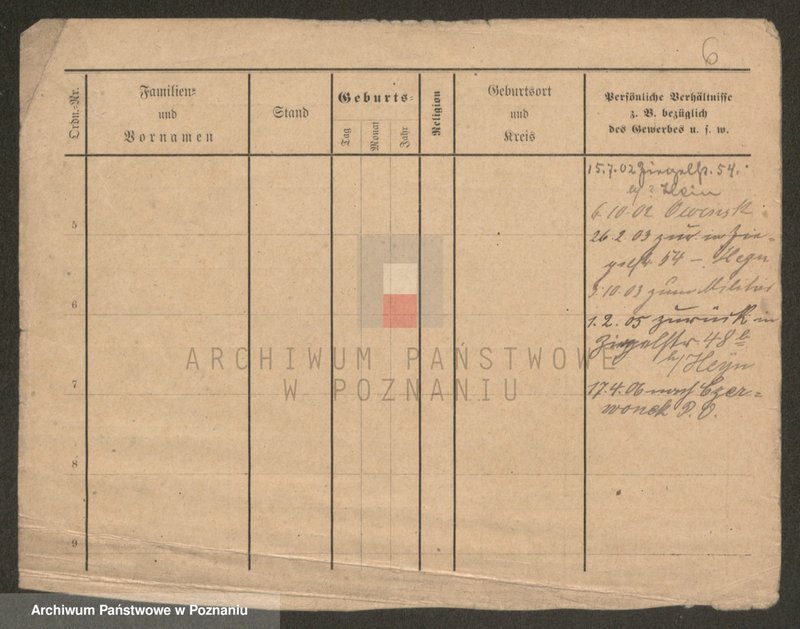 6
Ordn.-Nr.
Familien-
und
Vornamen
Stand
Geburts-
Tag
Monat
Jahr
Religion
Geburtsort
und
Kreis
Persönliche Verhältnisse
z. B. bezüglich
des Gewerbes u. s. w.
15.7.02 Ziegelstr. 54.
Hein
6.10.02 Owinsk
26.2.03 zur. in Zie-
gelstr. 54 – Heyn
3.10.03 zum Militär
1.2.05 zurück in
Ziegelstr 48b
b/Heyn
17.4.06 nach Czer-
wonak P. O.
5
6
7
8
9
ARCHIWUM PAŃSTWOWE
W POZNANIU
Archiwum Państwowe w Poznaniu